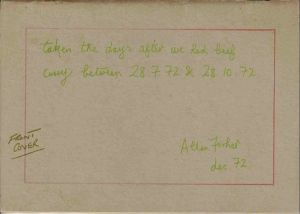 taken the days after we had beef
curry between 28.7.72 & 28.10.72
FRONT
COVER
Allen Fisher
dec 72